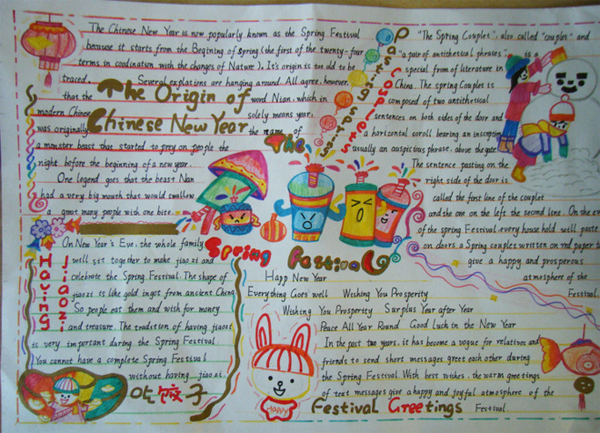 The Chinese New Year is now popularly known as the Spring Festival
because it starts from the Begining of Spring (the first of the twenty-four
terms in cordination with the changes of Nature). It's origin is too old to be
traced. Several explations are hanging around. All agree, however,
that the word Nian, which in
modern Chinese solely means year,
was originally the name of
a monster beast that started to prey on people the
night before the beginning of a new year.
One legend goes that the beast Nan
had a very big mouth that would swallow
a great many people with one bite.
The Origin of
Chinese New Year
Pasting Spring Couplets
"The Spring Couplets", also called "couplets" and
"a pair of antithetical phrases", is a
special from of literature in
China. The spring Couplets is
composed of two antithetical
sentences on both sides of the door and
a horizontal scroll bearing an inscription
usually an auspicious phrase, above the gate.
The sentence pasting on the
right side of the door is
called the first line of the couplet
and the one on the left the second line. On the eve
of the spring Festival every house hold will paste
on doors a Spring couplets written on red paper to
give a happy and prosperous
atmosphere of the
Festival.
The
Spring Festival
Having Jiaozi
On New Year's Eve, the whole family
will sit together to make jiaozi and
celebrate the Spring Festival. The shape of
jiaozi is like gold ingot from ancient China
So people eat them and wish for money
and treasure. The tradition of having jiaozi
is very important during the Spring Festival
You cannot have a complete Spring Festival
without having jiaozi.
吃饺子
Happ New Year
Everything Goes well Wishing You Prosperity
Wishing You Prosperity Surplus Year after Year
Peace All Year Round Good luck in the New Year
In the past two years, it has become a vogue for relatives and
friends to send short messages greet each other during
the Spring Festival. With best wishes, the warm greetings
of text messages give a happy and joyful atmosphere of the
Festival.
HAPPY
Festival Greetings